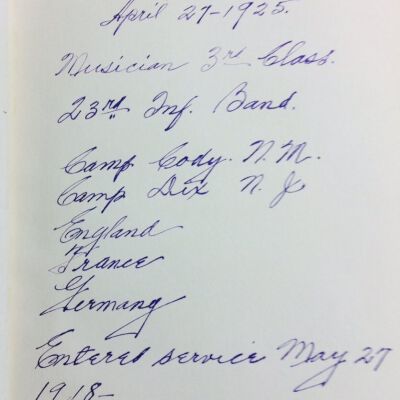 April 27-1925.
Musician 3rd Class.
23rd Inf. Band.
Camp Cody. N.M.
Camp Dix N.J
England
France
Germany
Entered service May 27
1918-